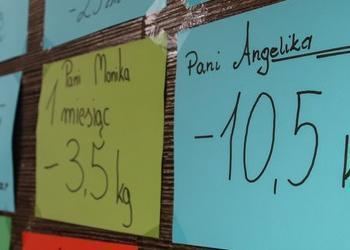 Pani Monika
1 miesiąc
-3,5 kg
Pani Angelika
-10,5 k